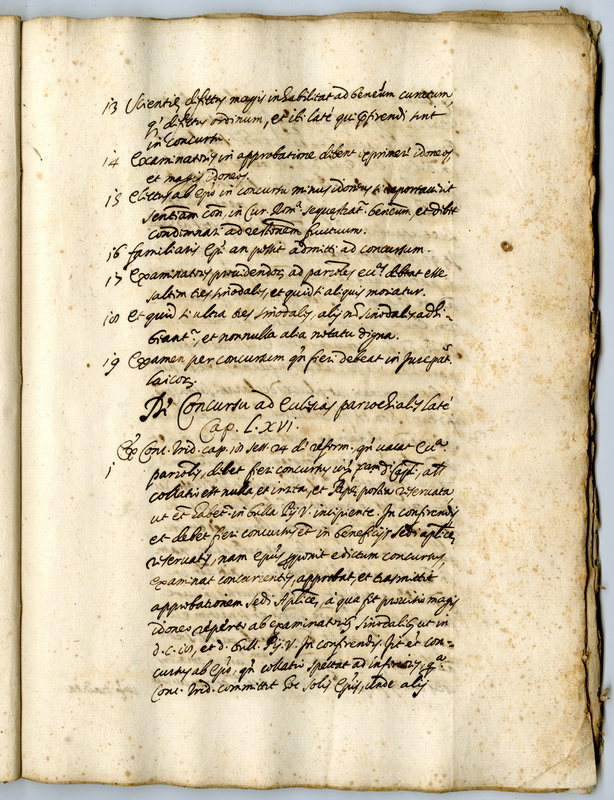 13 Scientię defectus magis inhabilitat ad benēum curatum
q̄ defectus ordinum, et ibi latè qui p̄ferendi sint
in Concursu
14 Examinatores in approbatione debent exprimere idoneos,
et magis idoneos.
15 Electus ab Ep̄o in concursu minus idoneus si reportaverit
sentiam con. in Cur. Rom.ª sequestrat.r benēum, et debet
condemnari ad restonem fructuum.
16 familiaris Ep̄i an possit admitti ad concursum.
17 Examinatores providendo ad paroles ecc.ª debent esse
saltem tres sinodales, et quid si aliquis moriatur.
18 Et quid si ultra tres sinodales, alij nō sinodales adhi-
beant.r, et nonnulla alia notatu digna.
19 Examen per concursum qn̄ fieri debeat in Jurepat.
laicor.
De Concursu ad Ecclesias parochiales latè
Cap. LXVI.
1 Ex Conc. Trid. cap. 18 sess. 24 de reform. qn̄ vacat ecc.ª
parolis, debet fieri concursus
collatio est nulla et irrita, et Papę solum reservata
ut et habet.r in bulla Pij V. incipiente. In conferendis
et debet fieri concursus et in beneficijs Sedi aplicę
reservatis, nam Ep̄us pponit edictum concursus,
examinat concurrentes, approbat, et trasmittit
approbationem Sedi Aplicę, a qua fit provisio magis
idoneo reperto ab examinatoribus sinodalibus ut in
d. c. 18, et d. bull. Pij V. In conferendis. fit et con-
cursus ab Ep̄o, qn̄ collatio spectat ad inferiores, q.ª
Conc. Trid. committit hoc solis Ep̄is, unde alij